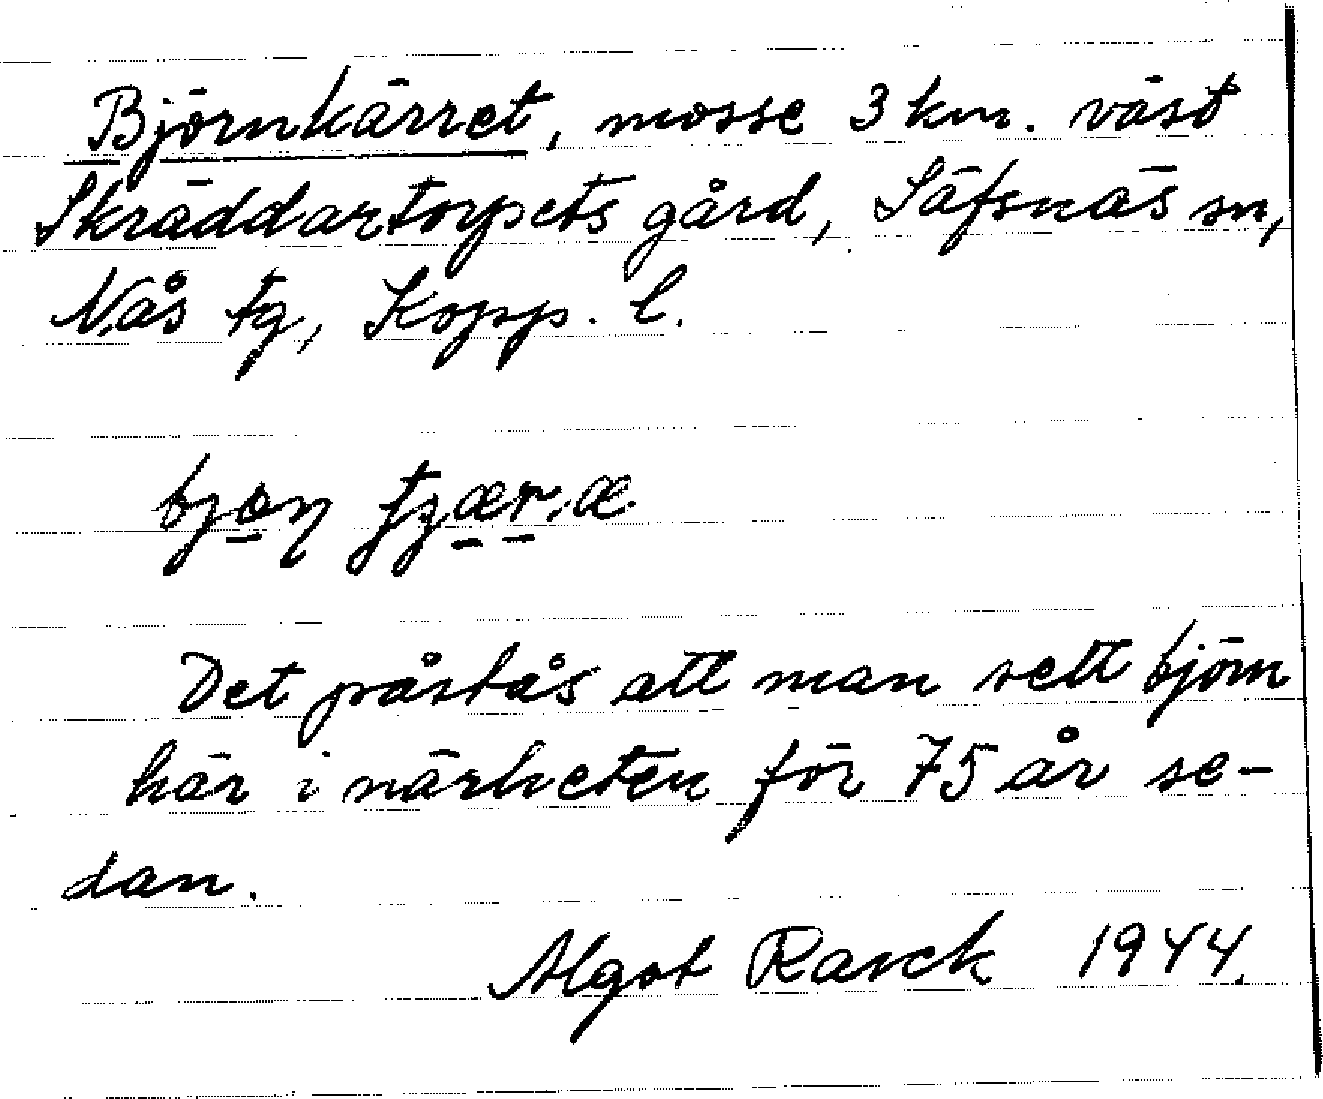 Björnkärret, mosse 3 km. väst
Skräddartorpets gård, Säfsnäs sn,
Nås tg, Kopp. l.
Det påstås att man sett björn
här i närheten för 75 år se-
dan.
Algot Rasck 1944.